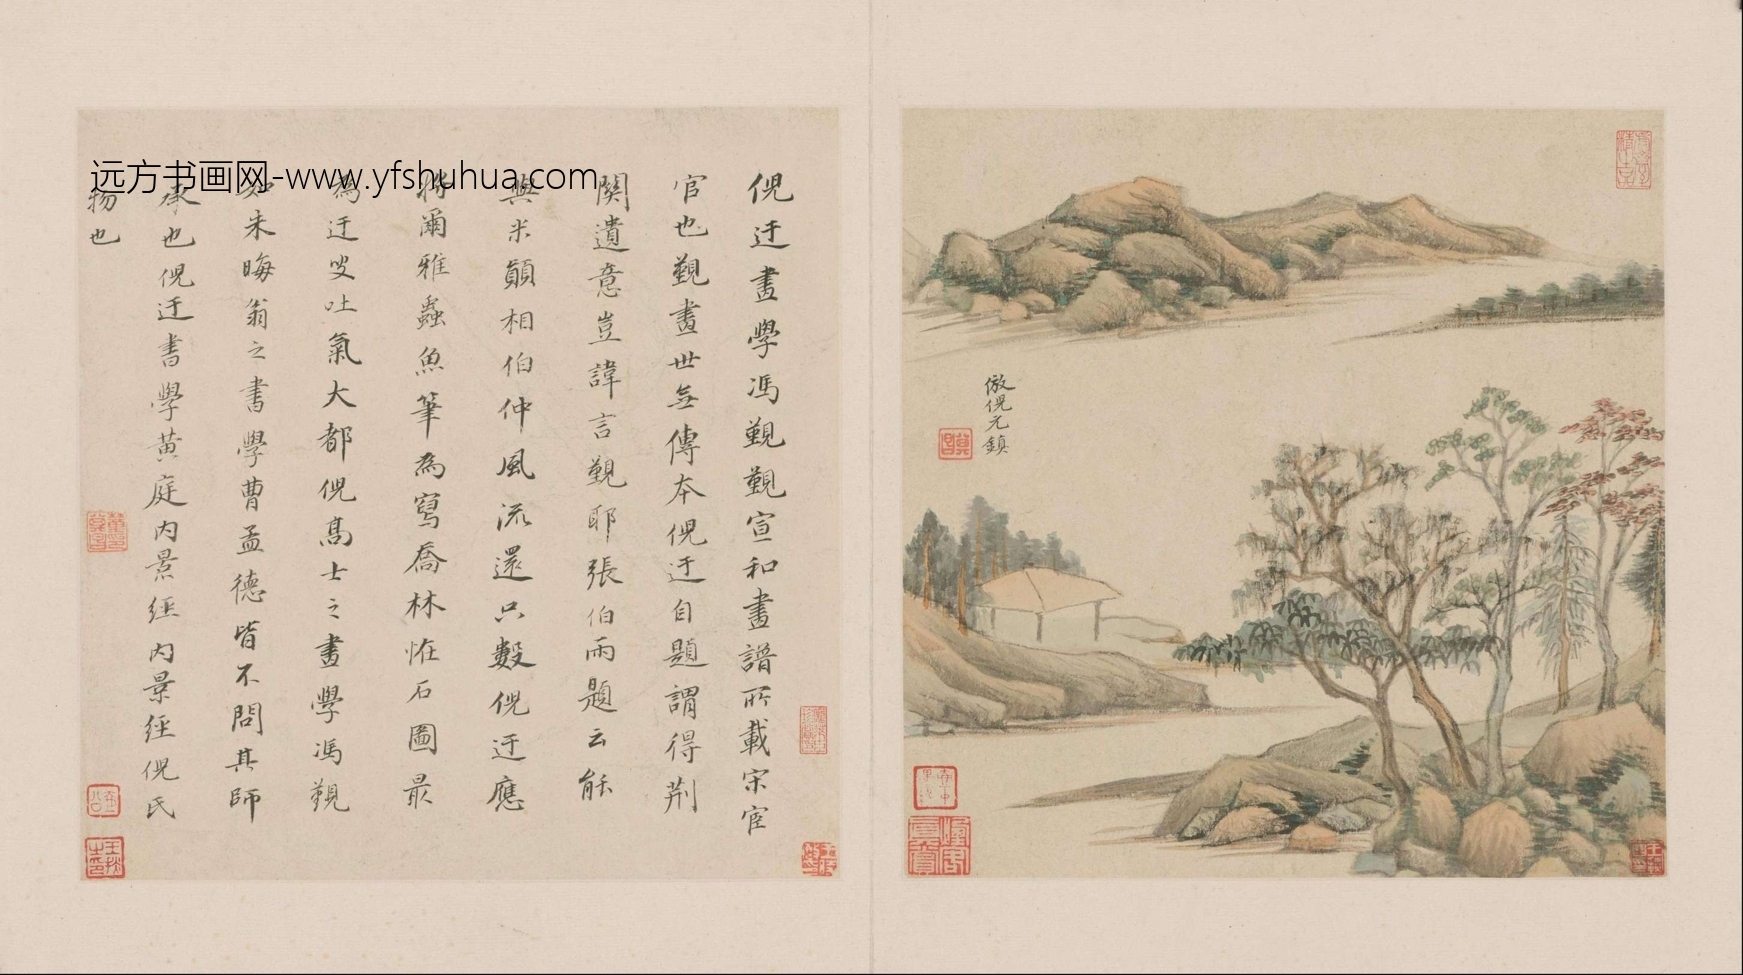 倪迂畫學馮覲覲宣和畫譜所載宋宦
官也覲畫世無傳本倪迂自題謂得荆
関遺意豈諱言覲耶張伯雨題云能
與米顛相伯仲風流還只數倪迂應
將爾雅蟲魚筆為寫喬林恠石圖最
為迂叟吐氣大都倪高士之畫學馮覲
如朱晦翁之書學曹孟德皆不問其師
承也倪迂書學黄庭内景經内景經倪氏
物也
倣倪元鎮
远方书画网-www.yfshuhua.com